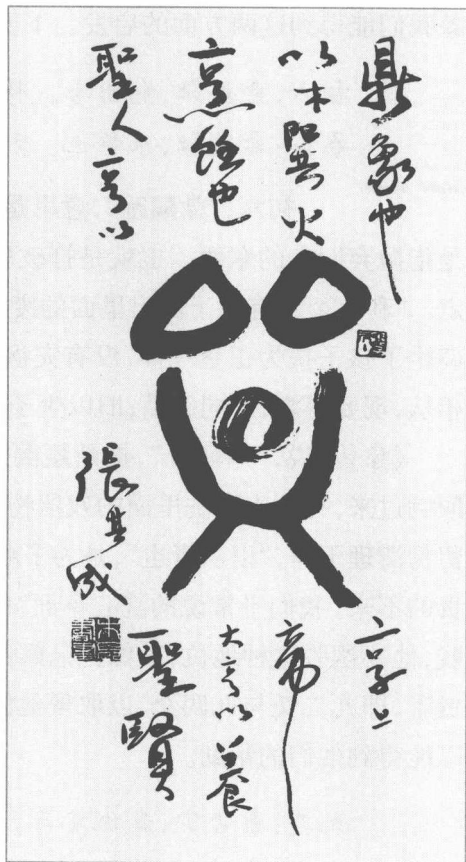 鼎象也
以木巽火
烹飪也
聖人亨以
享上
帝
大亨以養
聖賢
張其成